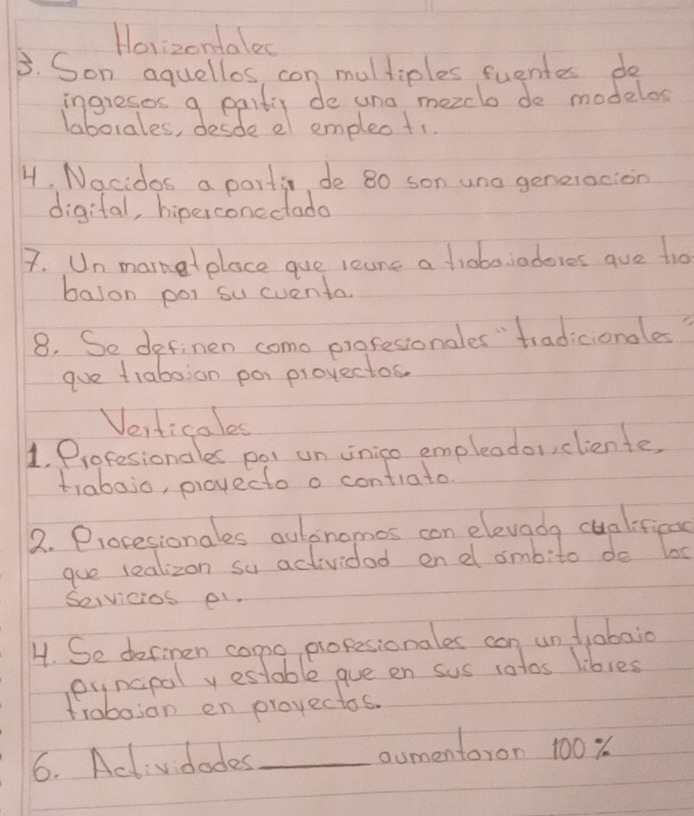 Horizontales
3. Son aquellos con multiples fuentes de
ingresos a partir de una mezcla de modelos
laborales, desde el empleo t1.
4. Nacidos a partir de 80 son una generacion
digital, hiperconectada
7. Un marketplace que reune a trabajadores que tra
bajan por su cuenta.
8. Se definen como profesionales "tradicionales"
que trabajan por proyectos
Verticales
1. Profesionales por un único empleador, cliente,
trabajo, proyecto o contrato.
2. Profesionales autónomos con elevada cualificac
que realizan su actividad en el ámbito de los
Servicios p1.
4. Se definen como profesionales con un trabajo
principal y estable que en sus ratos libres
trabajan en proyectos.
6. Actividades ______ aumentaron 100%